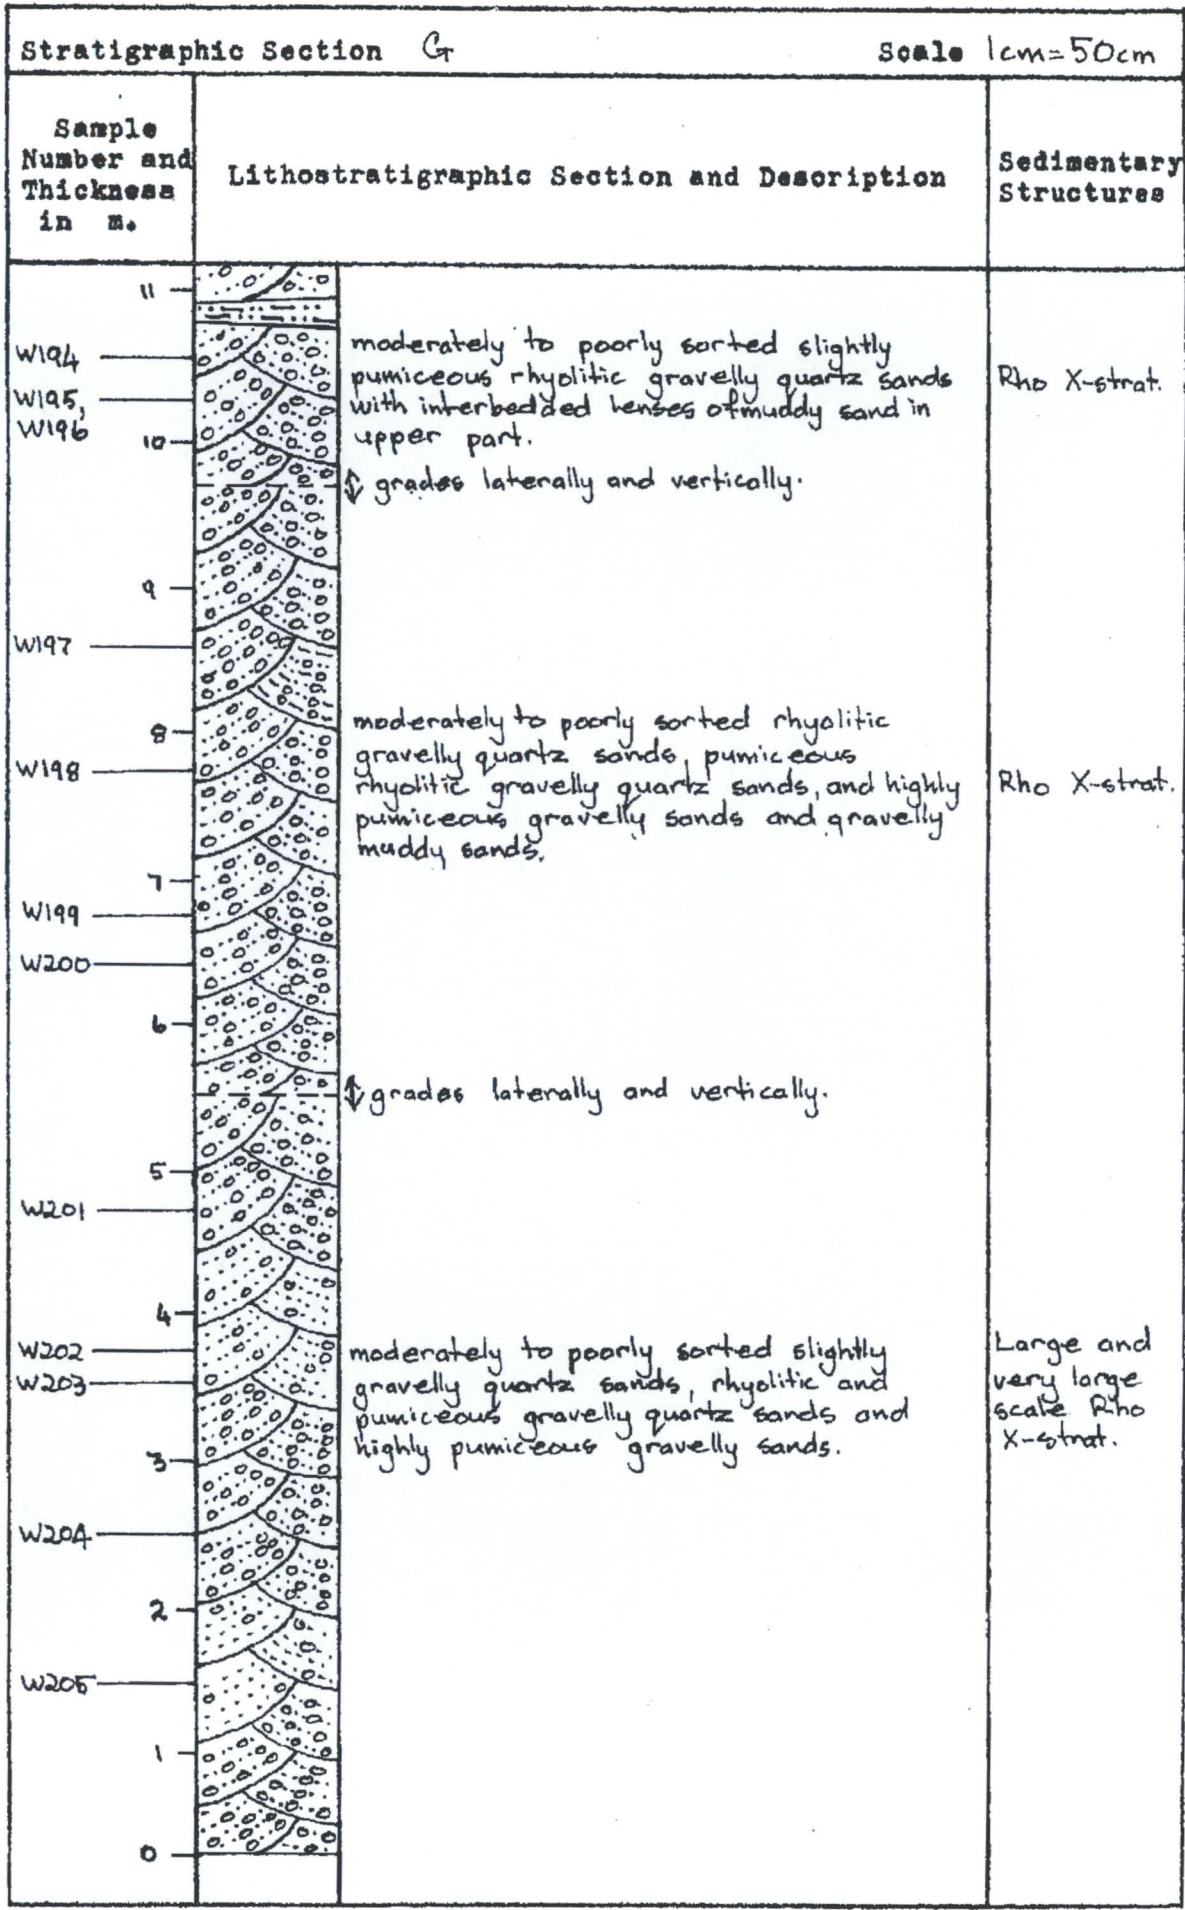 Stratigraphic Section G Scale 1cm=50cm
Sample
Number and
Thickness
in m.
Lithostratigraphic Section and Description
Sedimentary
Structures
11
W194
moderately to poorly sorted slightly
pumiceous rhyolitic gravelly quartz sands
with interbedded lenses of muddy sand in
upper part.
Rho X-strat.
W195,
W196
10
grades laterally and vertically.
9
W197
8
W198
moderately to poorly sorted rhyolitic
gravelly quartz sands, pumiceous
rhyolitic gravelly quartz sands, and highly
pumiceous gravelly sands and gravelly
muddy sands.
Rho X-strat.
7
W199
W200
6
grades laterally and vertically.
5
W201
4
W202
W203
moderately to poorly sorted slightly
gravelly quartz sands, rhyolitic and
pumiceous gravelly quartz sands and
highly pumiceous gravelly sands.
Large and
very large
scale Rho
X-strat.
3
W204
2
W205
1
0